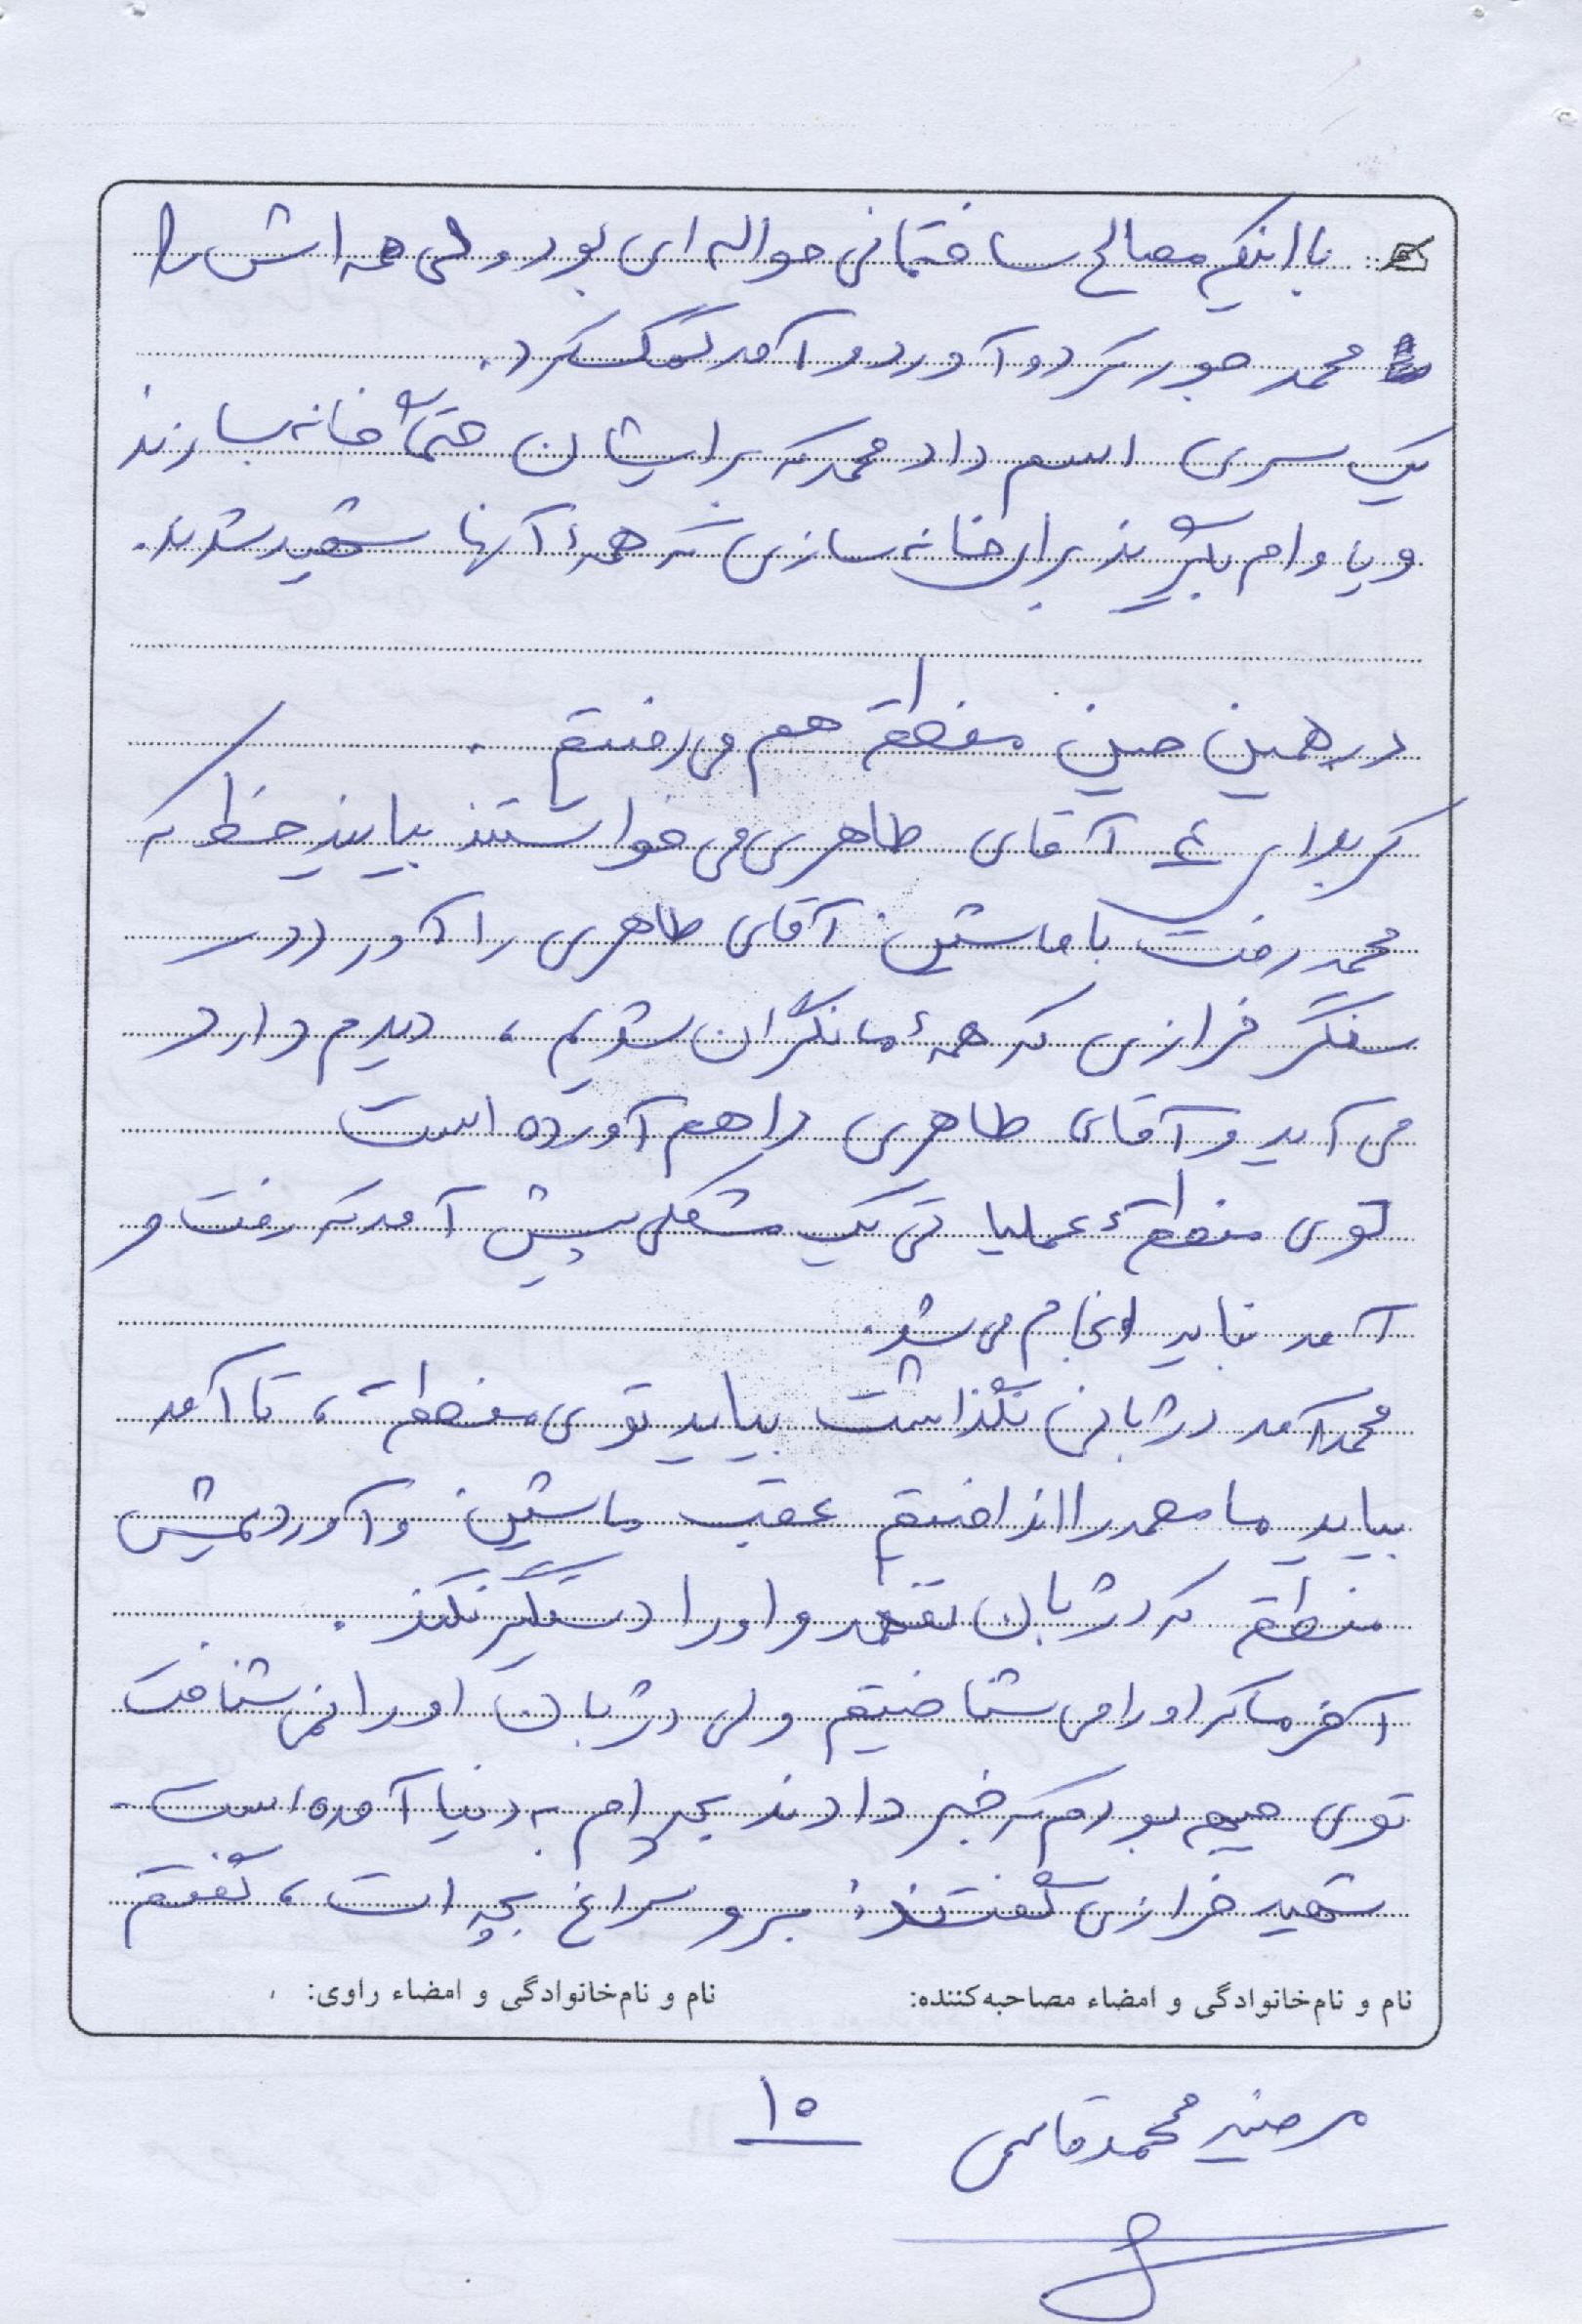 با اینکه مصالح ساختمانی حواله ای بود ولی همه اش را
محمد جور کرد و آورد و آمد کمک کرد.
یک سری اسم داد محمد که برایشان حتماً خانه بسازند
و یا وام بگیرند برای خانه سازی که همهٔ آنها شهید شدند.
در همین حین منطقه هم می رفتیم.
کربلای ۴ آقای طاهری می خواستند بیایند خط که
محمد رفت با ماشین آقای طاهری را آورد در
سنگر خرازی که همهٔ ما نگران شدیم، دیدم دارد
می آید و آقای طاهری را هم آورده است
توی منطقهٔ عملیاتی یک مشکلی پیش آمد که رفت و
آمد نباید انجام می شد.
محمد آمد دژبانی نگذاشت بیاید توی منطقه، تا آمد
بیاید ما محمد را انداختیم عقب ماشین و آوردیمش
منطقه که دژبان نفهمد و او را دستگیر نکند.
آخر ما که او را می شناختیم ولی دژبان او را نمی شناخت
توی جبهه بودم که خبر دادند بچه ام به دنیا آمده است.
شهید خرازی گفتند: برو سراغ بچه ات، گفتم
نام و نام‌خانوادگی و امضاء مصاحبه‌کننده: نام و نام‌خانوادگی و امضاء راوی:
مرضیه محمدقاسمی ۱۵